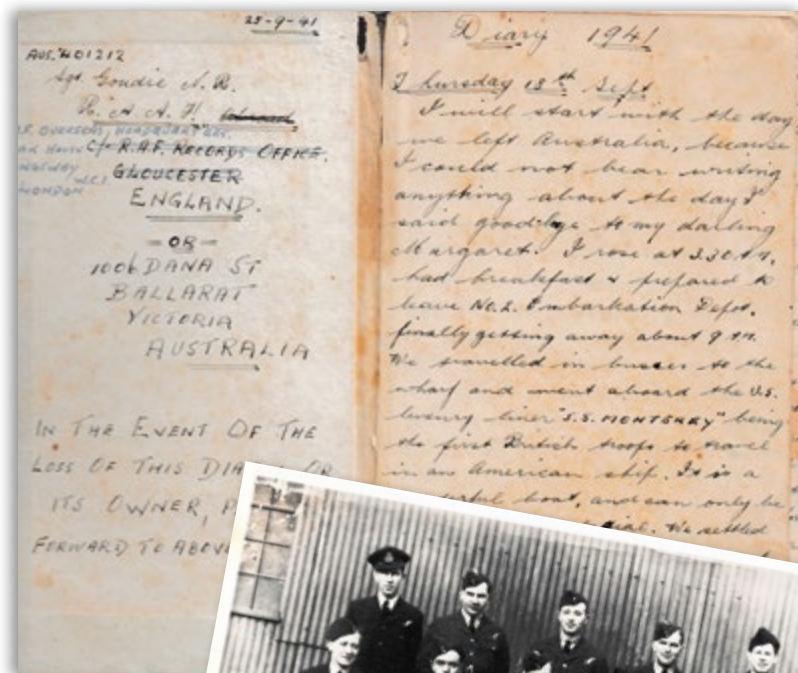 25-9-41
AUS. 401212
Sgt. Goudie N. R.
R. A. A. F. Abroad
OVERSEAS, HEADQUARTERS.
c/- R.A.F. RECORDS OFFICE.
KINGSWAY WC2
GLOUCESTER
LONDON
ENGLAND.
- OR -
1006 DANA ST
BALLARAT
VICTORIA
AUSTRALIA
IN THE EVENT OF THE
LOSS OF THIS OR
ITS OWNER,
FORWARD TO
Diary 1941
Thursday 18th Sept
I will start with the day
we left Australia, because
I could not bear writing
anything about the day I
said goodbye to my darling
Margaret. I rose at 3.30 A.M.
had breakfast & prepared to
leave No.2. Embarkation Depot,
finally getting away about 9 A.M.
We travelled in busses to the
wharf and went aboard the U.S.
luxury liner "S.S. MONTEREY" being
the first British troops to travel
in an American ship. It is a
boat, and can only be
We settled